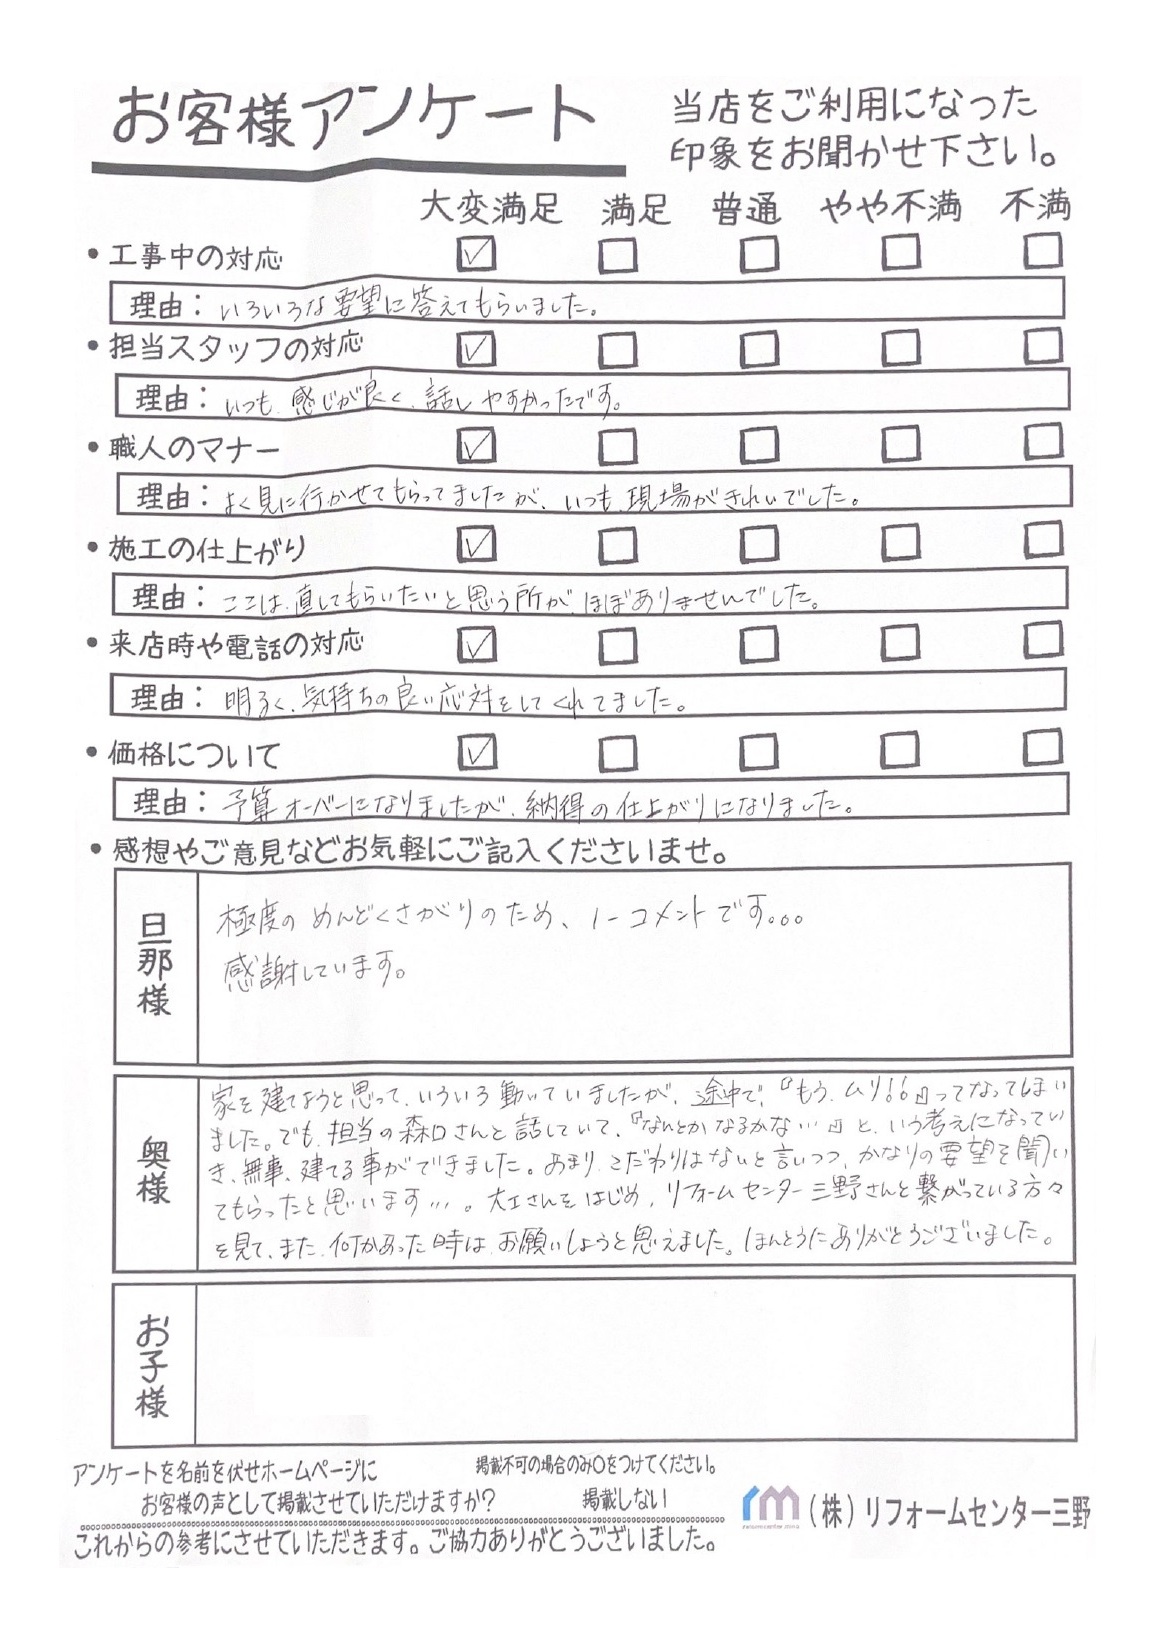 お客様アンケート
当店をご利用になった
印象をお聞かせ下さい。
大変満足 満足 普通 やや不満 不満
• 工事中の対応
理由: いろいろな要望に答えてもらいました。
• 担当スタッフの対応
理由: いつも、感じが良く、話しやすかったです。
• 職人のマナー
理由: よく見に行かせてもらってましたが、いつも、現場がきれいでした。
• 施工の仕上がり
理由: ここは、直してもらいたいと思う所が、ほぼありませんでした。
• 来店時や電話の対応
理由: 明るく、気持ちの良い応対をしてくれてました。
• 価格について
理由: 予算オーバーになりましたが、納得の仕上がりになりました。
• 感想やご意見などお気軽にご記入くださいませ。
旦那様
極度のめんどくさがりのため、1-コメントです。。。
感謝しています。
奥様
家を建てようと思って、いろいろ動いていましたが、途中で、『もう、ムリ!!』ってなってしまい
ました。でも、担当の森口さんと話していて、『なんとかなるかな…』と、いう考えになってい
き、無事、建てる事ができました。あまり、こだわりはないと言いつつ、かなりの要望を聞い
てもらったと思います…。大工さんをはじめ、リフォームセンター三野さんと繋がっている方々
を見て、また、何かあった時は、お願いしようと思えました。ほんとうにありがとうございました。
お子様
アンケートを名前を伏せホームページに
お客様の声として掲載させていただけますか?
掲載不可の場合のみ○をつけてください。
掲載しない
これからの参考にさせていただきます。ご協力ありがとうございました。
rm (株)リフォームセンター三野